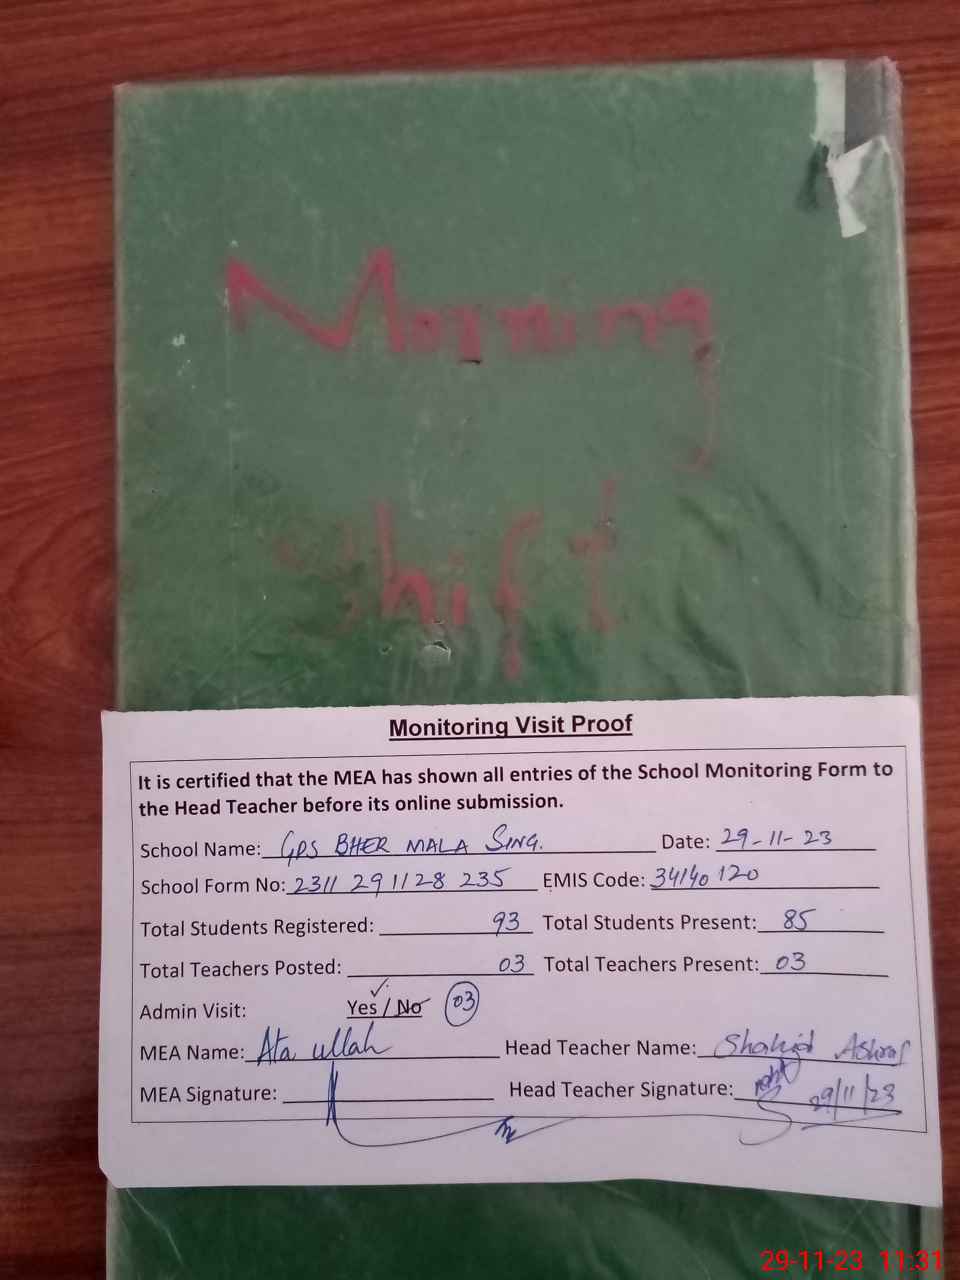 Morning
Shift
Monitoring Visit Proof
It is certified that the MEA has shown all entries of the School Monitoring Form to
the Head Teacher before its online submission.
School Name: GPS BHER MALA SING. Date: 29-11-23
School Form No: 2311 291128 235 EMIS Code: 34140120
Total Students Registered: 93 Total Students Present: 85
Total Teachers Posted: 03 Total Teachers Present: 03
Admin Visit: Yes / No 03
MEA Name: Ata ullah Head Teacher Name: Shahid Ashraf
MEA Signature: Head Teacher Signature: 29/11/23
29-11-23 11:31